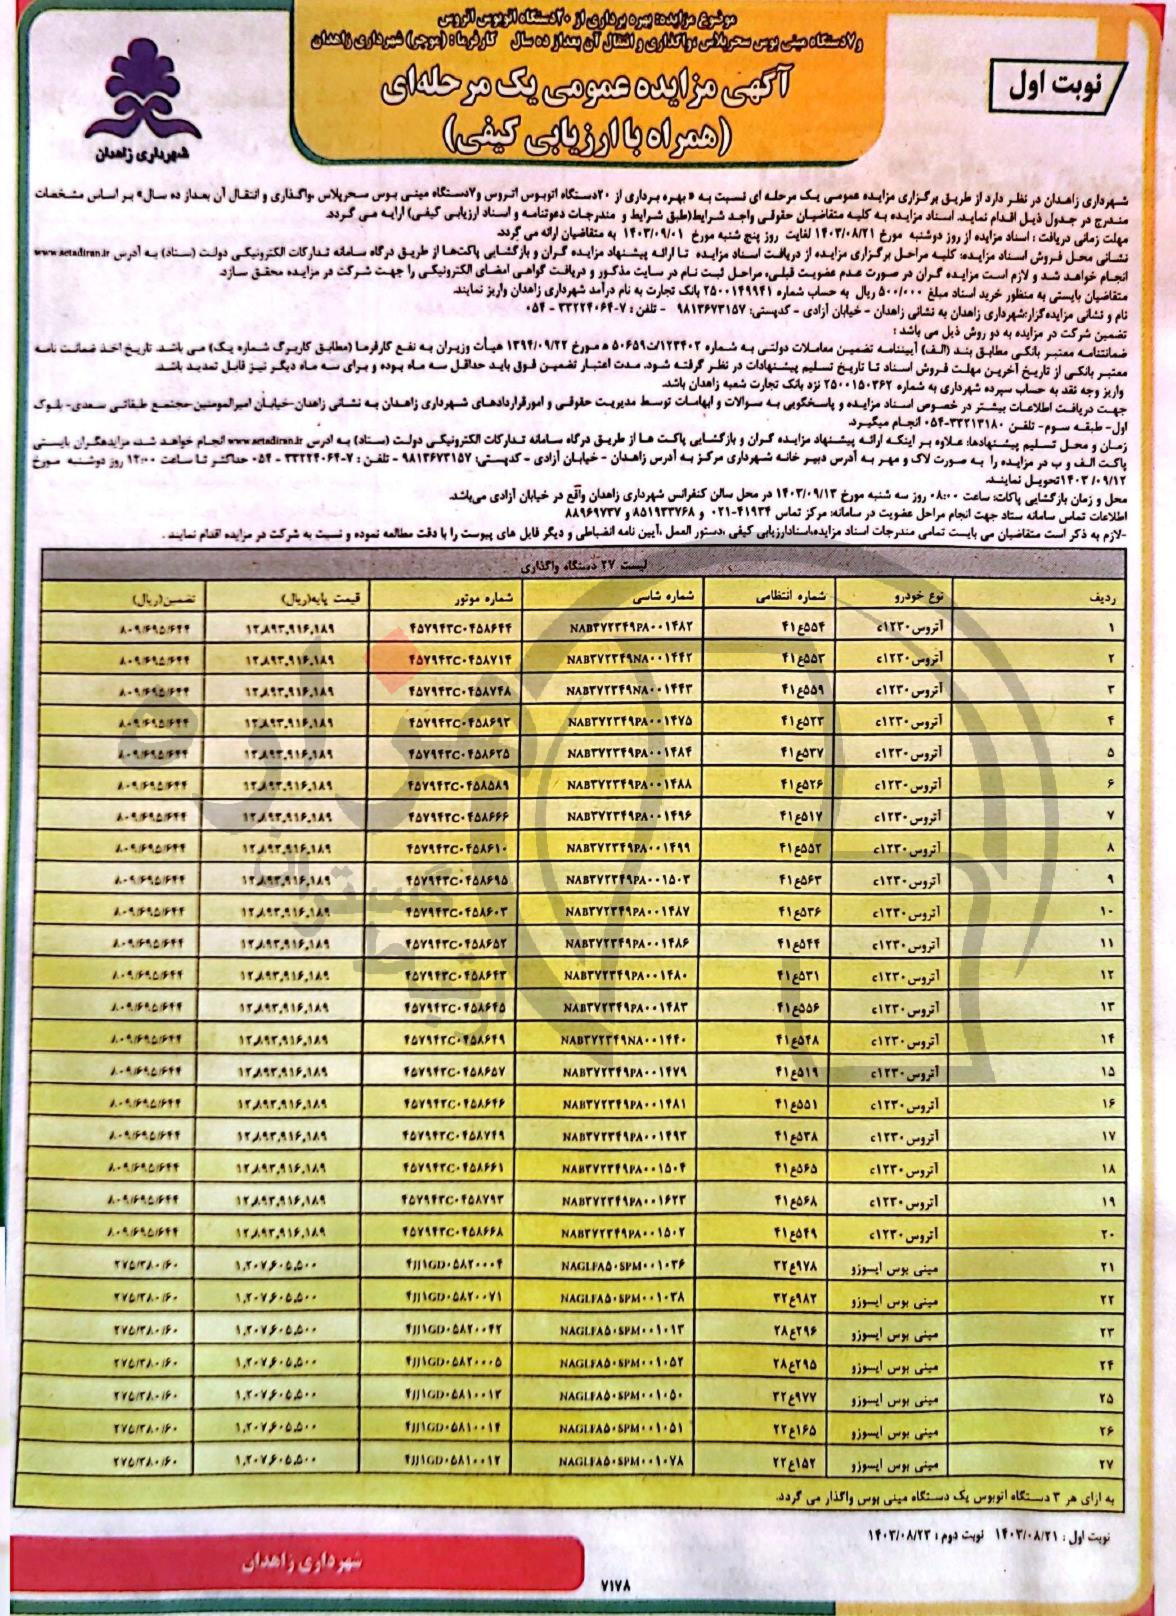 موضوع مزایده: بهره برداری از ۲۰دستگاه اتوبوس آتروس
و۷دستگاه مینی بوس سحرپلاس ،واگذاری و انتقال آن بعداز ده سال کارفرما: (موجر) شهرداری زاهدان
آگهی مزایده عمومی یک مرحله‌ای
(همراه با ارزیابی کیفی)
نوبت اول
شهرداری زاهدان
شهرداری زاهدان در نظر دارد از طریق برگزاری مزایده عمومی یک مرحله ای نسبت به « بهره برداری از ۲۰دستگاه اتوبوس اتروس و۷دستگاه مینی بوس سحرپلاس ،واگذاری و انتقال آن بعداز ده سال» بر اساس مشخصات
مندرج در جدول ذیل اقدام نماید. اسناد مزایده به کلیه متقاضیان حقوقی واجد شرایط(طبق شرایط و مندرجات دعوتنامه و اسناد ارزیابی کیفی) ارایه می گردد.
مهلت زمانی دریافت : اسناد مزایده از روز دوشنبه مورخ ۱۴۰۳/۰۸/۲۱ لغایت روز پنج شنبه مورخ ۱۴۰۳/۰۹/۰۱ به متقاضیان ارائه می گردد.
نشانی محل فروش اسناد مزایده: کلیه مراحل برگزاری مزایده از دریافت اسناد مزایده تا ارائه پیشنهاد مزایده گران و بازگشایی پاکت‌ها از طریق درگاه سامانه تدارکات الکترونیکی دولت (ستاد) به آدرس www.setadiran.ir
انجام خواهد شد و لازم است مزایده گران در صورت عدم عضویت قبلی، مراحل ثبت نام در سایت مذکور و دریافت گواهی امضای الکترونیکی را جهت شرکت در مزایده محقق سازد.
متقاضیان بایستی به منظور خرید اسناد مبلغ ۵۰۰/۰۰۰ ریال به حساب شماره ۲۵۰۰۱۴۹۹۴۱ بانک تجارت به نام درآمد شهرداری زاهدان واریز نمایند.
نام و نشانی مزایده‌گزار:شهرداری زاهدان به نشانی زاهدان - خیابان آزادی - کدپستی: ۹۸۱۳۶۷۳۱۵۷ - تلفن : ۷-۳۳۲۲۴۰۶۴ - ۰۵۴
تضمین شرکت در مزایده به دو روش ذیل می باشد :
ضمانتنامه معتبر بانکی مطابق بند (الف) آییننامه تضمین معاملات دولتی به شماره ۱۲۳۴۰۲/ت۵۰۶۵۹ه مورخ ۱۳۹۴/۰۹/۲۲ هیأت وزیران به نفع کارفرما (مطابق کاربرگ شماره یک) می باشد. تاریخ اخذ ضمانت نامه
معتبر بانکی از تاریخ آخرین مهلت فروش اسناد تا تاریخ تسلیم پیشنهادات در نظر گرفته شود. مدت اعتبار تضمین فوق باید حداقل سه ماه بوده و برای سه ماه دیگر نیز قابل تمدید باشد.
واریز وجه نقد به حساب سپرده شهرداری به شماره ۲۵۰۰۱۵۰۳۶۲ نزد بانک تجارت شعبه زاهدان باشد.
جهت دریافت اطلاعات بیشتر در خصوص اسناد مزایده و پاسخگویی به سوالات و ابهامات توسط مدیریت حقوقی و امورقراردادهای شهرداری زاهدان به نشانی زاهدان-خیابان امیرالمومنین-مجتمع طبقاتی سعدی- بلوک
اول- طبقه سوم- تلفن ۳۳۲۱۳۱۸۰-۰۵۴ انجام میگیرد.
زمان و محل تسلیم پیشنهادها: علاوه بر اینکه ارائه پیشنهاد مزایده گران و بازگشایی پاکت ها از طریق درگاه سامانه تدارکات الکترونیکی دولت (ستاد) به ادرس www.setadiran.ir انجام خواهد شد، مزایدهگران بایستی
پاکت الف و ب در مزایده را به صورت لاک و مهر به آدرس دبیر خانه شهرداری مرکز به آدرس زاهدان - خیابان آزادی - کدپستی: ۹۸۱۳۶۷۳۱۵۷ - تلفن : ۷-۳۳۲۲۴۰۶۴ - ۰۵۴ حداکثر تا ساعت ۱۲:۰۰ روز دوشنبه مورخ
۱۴۰۳/۰۹/۱۲تحویل نمایند.
محل و زمان بازگشایی پاکات: ساعت ۰۸:۰۰ روز سه شنبه مورخ ۱۴۰۳/۰۹/۱۳ در محل سالن کنفرانس شهرداری زاهدان واقع در خیابان آزادی می‌باشد.
اطلاعات تماس سامانه ستاد جهت انجام مراحل عضویت در سامانه: مرکز تماس ۴۱۹۳۴-۰۲۱ و ۸۵۱۹۳۳۷۶۸ و ۸۸۹۶۹۷۳۷
-لازم به ذکر است متقاضیان می بایست تمامی مندرجات اسناد مزایده،اسنادارزیابی کیفی ،دستور العمل ،آیین نامه انضباطی و دیگر فایل های پیوست را با دقت مطالعه نموده و نسبت به شرکت در مزایده اقدام نمایند .
لیست ۲۷ دستگاه واگذاری
ردیف نوع خودرو شماره انتظامی شماره شاسی شماره موتور قیمت پایه(ریال) تضمین(ریال)
۱ آتروس c۱۲۳۰ ۵۵۴ع۴۱ NAB۳۷۲۳۴۹PA۰۰۱۴۸۲ ۴۵۷۹۴۳C۰۴۵۸۶۴۴ ۱۲,۸۹۳,۹۱۶,۱۸۹ ۸۰۹/۶۹۵/۶۴۴
۲ آتروس c۱۲۳۰ ۵۵۳ع۴۱ NAB۳۷۲۳۴۹NA۰۰۱۴۴۲ ۴۵۷۹۴۳C۰۴۵۸۷۱۴ ۱۲,۸۹۳,۹۱۶,۱۸۹ ۸۰۹/۶۹۵/۶۴۴
۳ آتروس c۱۲۳۰ ۵۵۹ع۴۱ NAB۳۷۲۳۴۹NA۰۰۱۴۴۳ ۴۵۷۹۴۳C۰۴۵۸۷۴۸ ۱۲,۸۹۳,۹۱۶,۱۸۹ ۸۰۹/۶۹۵/۶۴۴
۴ آتروس c۱۲۳۰ ۵۲۳ع۴۱ NAB۳۷۲۳۴۹PA۰۰۱۴۷۵ ۴۵۷۹۴۳C۰۴۵۸۶۹۳ ۱۲,۸۹۳,۹۱۶,۱۸۹ ۸۰۹/۶۹۵/۶۴۴
۵ آتروس c۱۲۳۰ ۵۳۷ع۴۱ NAB۳۷۲۳۴۹PA۰۰۱۴۸۴ ۴۵۷۹۴۳C۰۴۵۸۶۲۵ ۱۲,۸۹۳,۹۱۶,۱۸۹ ۸۰۹/۶۹۵/۶۴۴
۶ آتروس c۱۲۳۰ ۵۲۶ع۴۱ NAB۳۷۲۳۴۹PA۰۰۱۴۸۸ ۴۵۷۹۴۳C۰۴۵۸۵۸۹ ۱۲,۸۹۳,۹۱۶,۱۸۹ ۸۰۹/۶۹۵/۶۴۴
۷ آتروس c۱۲۳۰ ۵۱۷ع۴۱ NAB۳۷۲۳۴۹PA۰۰۱۴۹۶ ۴۵۷۹۴۳C۰۴۵۸۶۶۶ ۱۲,۸۹۳,۹۱۶,۱۸۹ ۸۰۹/۶۹۵/۶۴۴
۸ آتروس c۱۲۳۰ ۵۵۲ع۴۱ NAB۳۷۲۳۴۹PA۰۰۱۴۹۹ ۴۵۷۹۴۳C۰۴۵۸۶۱۰ ۱۲,۸۹۳,۹۱۶,۱۸۹ ۸۰۹/۶۹۵/۶۴۴
۹ آتروس c۱۲۳۰ ۵۶۳ع۴۱ NAB۳۷۲۳۴۹PA۰۰۱۵۰۳ ۴۵۷۹۴۳C۰۴۵۸۶۹۵ ۱۲,۸۹۳,۹۱۶,۱۸۹ ۸۰۹/۶۹۵/۶۴۴
۱۰ آتروس c۱۲۳۰ ۵۳۶ع۴۱ NAB۳۷۲۳۴۹PA۰۰۱۴۸۷ ۴۵۷۹۴۳C۰۴۵۸۶۰۳ ۱۲,۸۹۳,۹۱۶,۱۸۹ ۸۰۹/۶۹۵/۶۴۴
۱۱ آتروس c۱۲۳۰ ۵۴۴ع۴۱ NAB۳۷۲۳۴۹PA۰۰۱۴۸۶ ۴۵۷۹۴۳C۰۴۵۸۶۵۲ ۱۲,۸۹۳,۹۱۶,۱۸۹ ۸۰۹/۶۹۵/۶۴۴
۱۲ آتروس c۱۲۳۰ ۵۳۱ع۴۱ NAB۳۷۲۳۴۹PA۰۰۱۴۸۰ ۴۵۷۹۴۳C۰۴۵۸۶۴۳ ۱۲,۸۹۳,۹۱۶,۱۸۹ ۸۰۹/۶۹۵/۶۴۴
۱۳ آتروس c۱۲۳۰ ۵۵۶ع۴۱ NAB۳۷۲۳۴۹PA۰۰۱۴۸۳ ۴۵۷۹۴۳C۰۴۵۸۶۴۵ ۱۲,۸۹۳,۹۱۶,۱۸۹ ۸۰۹/۶۹۵/۶۴۴
۱۴ آتروس c۱۲۳۰ ۵۴۸ع۴۱ NAB۳۷۲۳۴۹NA۰۰۱۴۴۰ ۴۵۷۹۴۳C۰۴۵۸۶۴۹ ۱۲,۸۹۳,۹۱۶,۱۸۹ ۸۰۹/۶۹۵/۶۴۴
۱۵ آتروس c۱۲۳۰ ۵۱۹ع۴۱ NAB۳۷۲۳۴۹PA۰۰۱۴۷۹ ۴۵۷۹۴۳C۰۴۵۸۶۵۷ ۱۲,۸۹۳,۹۱۶,۱۸۹ ۸۰۹/۶۹۵/۶۴۴
۱۶ آتروس c۱۲۳۰ ۵۵۱ع۴۱ NAB۳۷۲۳۴۹PA۰۰۱۴۸۱ ۴۵۷۹۴۳C۰۴۵۸۶۴۶ ۱۲,۸۹۳,۹۱۶,۱۸۹ ۸۰۹/۶۹۵/۶۴۴
۱۷ آتروس c۱۲۳۰ ۵۳۸ع۴۱ NAB۳۷۲۳۴۹PA۰۰۱۴۹۳ ۴۵۷۹۴۳C۰۴۵۸۷۴۹ ۱۲,۸۹۳,۹۱۶,۱۸۹ ۸۰۹/۶۹۵/۶۴۴
۱۸ آتروس c۱۲۳۰ ۵۶۵ع۴۱ NAB۳۷۲۳۴۹PA۰۰۱۵۰۴ ۴۵۷۹۴۳C۰۴۵۸۶۶۱ ۱۲,۸۹۳,۹۱۶,۱۸۹ ۸۰۹/۶۹۵/۶۴۴
۱۹ آتروس c۱۲۳۰ ۵۶۸ع۴۱ NAB۳۷۲۳۴۹PA۰۰۱۶۲۳ ۴۵۷۹۴۳C۰۴۵۸۷۹۳ ۱۲,۸۹۳,۹۱۶,۱۸۹ ۸۰۹/۶۹۵/۶۴۴
۲۰ آتروس c۱۲۳۰ ۵۴۹ع۴۱ NAB۳۷۲۳۴۹PA۰۰۱۵۰۲ ۴۵۷۹۴۳C۰۴۵۸۶۶۸ ۱۲,۸۹۳,۹۱۶,۱۸۹ ۸۰۹/۶۹۵/۶۴۴
۲۱ مینی بوس ایسوزو ۹۷۸ع۳۲ NAGLFA۵۰SPM۰۰۱۰۳۶ ۴JJ۱GD۰۵۸۲۰۰۰۴ ۱,۲۰۷,۶۰۵,۵۰۰ ۲۷۵/۳۸۰/۶۰
۲۲ مینی بوس ایسوزو ۹۸۲ع۳۲ NAGLFA۵۰SPM۰۰۱۰۳۸ ۴JJ۱GD۰۵۸۲۰۰۷۱ ۱,۲۰۷,۶۰۵,۵۰۰ ۲۷۵/۳۸۰/۶۰
۲۳ مینی بوس ایسوزو ۲۹۶ع۲۸ NAGLFA۵۰SPM۰۰۱۰۱۳ ۴JJ۱GD۰۵۸۲۰۰۴۲ ۱,۲۰۷,۶۰۵,۵۰۰ ۲۷۵/۳۸۰/۶۰
۲۴ مینی بوس ایسوزو ۲۹۵ع۲۸ NAGLFA۵۰SPM۰۰۱۰۵۲ ۴JJ۱GD۰۵۸۲۰۰۰۵ ۱,۲۰۷,۶۰۵,۵۰۰ ۲۷۵/۳۸۰/۶۰
۲۵ مینی بوس ایسوزو ۹۷۷ع۳۲ NAGLFA۵۰SPM۰۰۱۰۵۰ ۴JJ۱GD۰۵۸۱۰۰۱۳ ۱,۲۰۷,۶۰۵,۵۰۰ ۲۷۵/۳۸۰/۶۰
۲۶ مینی بوس ایسوزو ۱۶۵ع۲۲ NAGLFA۵۰SPM۰۰۱۰۵۱ ۴JJ۱GD۰۵۸۱۰۰۱۴ ۱,۲۰۷,۶۰۵,۵۰۰ ۲۷۵/۳۸۰/۶۰
۲۷ مینی بوس ایسوزو ۱۵۲ع۲۲ NAGLFA۵۰SPM۰۰۱۰۷۸ ۴JJ۱GD۰۵۸۱۰۰۱۲ ۱,۲۰۷,۶۰۵,۵۰۰ ۲۷۵/۳۸۰/۶۰
به ازای هر ۳ دستگاه اتوبوس یک دستگاه مینی بوس واگذار می گردد.
نوبت اول : ۱۴۰۳/۰۸/۲۱ نوبت دوم : ۱۴۰۳/۰۸/۲۳
شهرداری زاهدان
۷۱۷۸